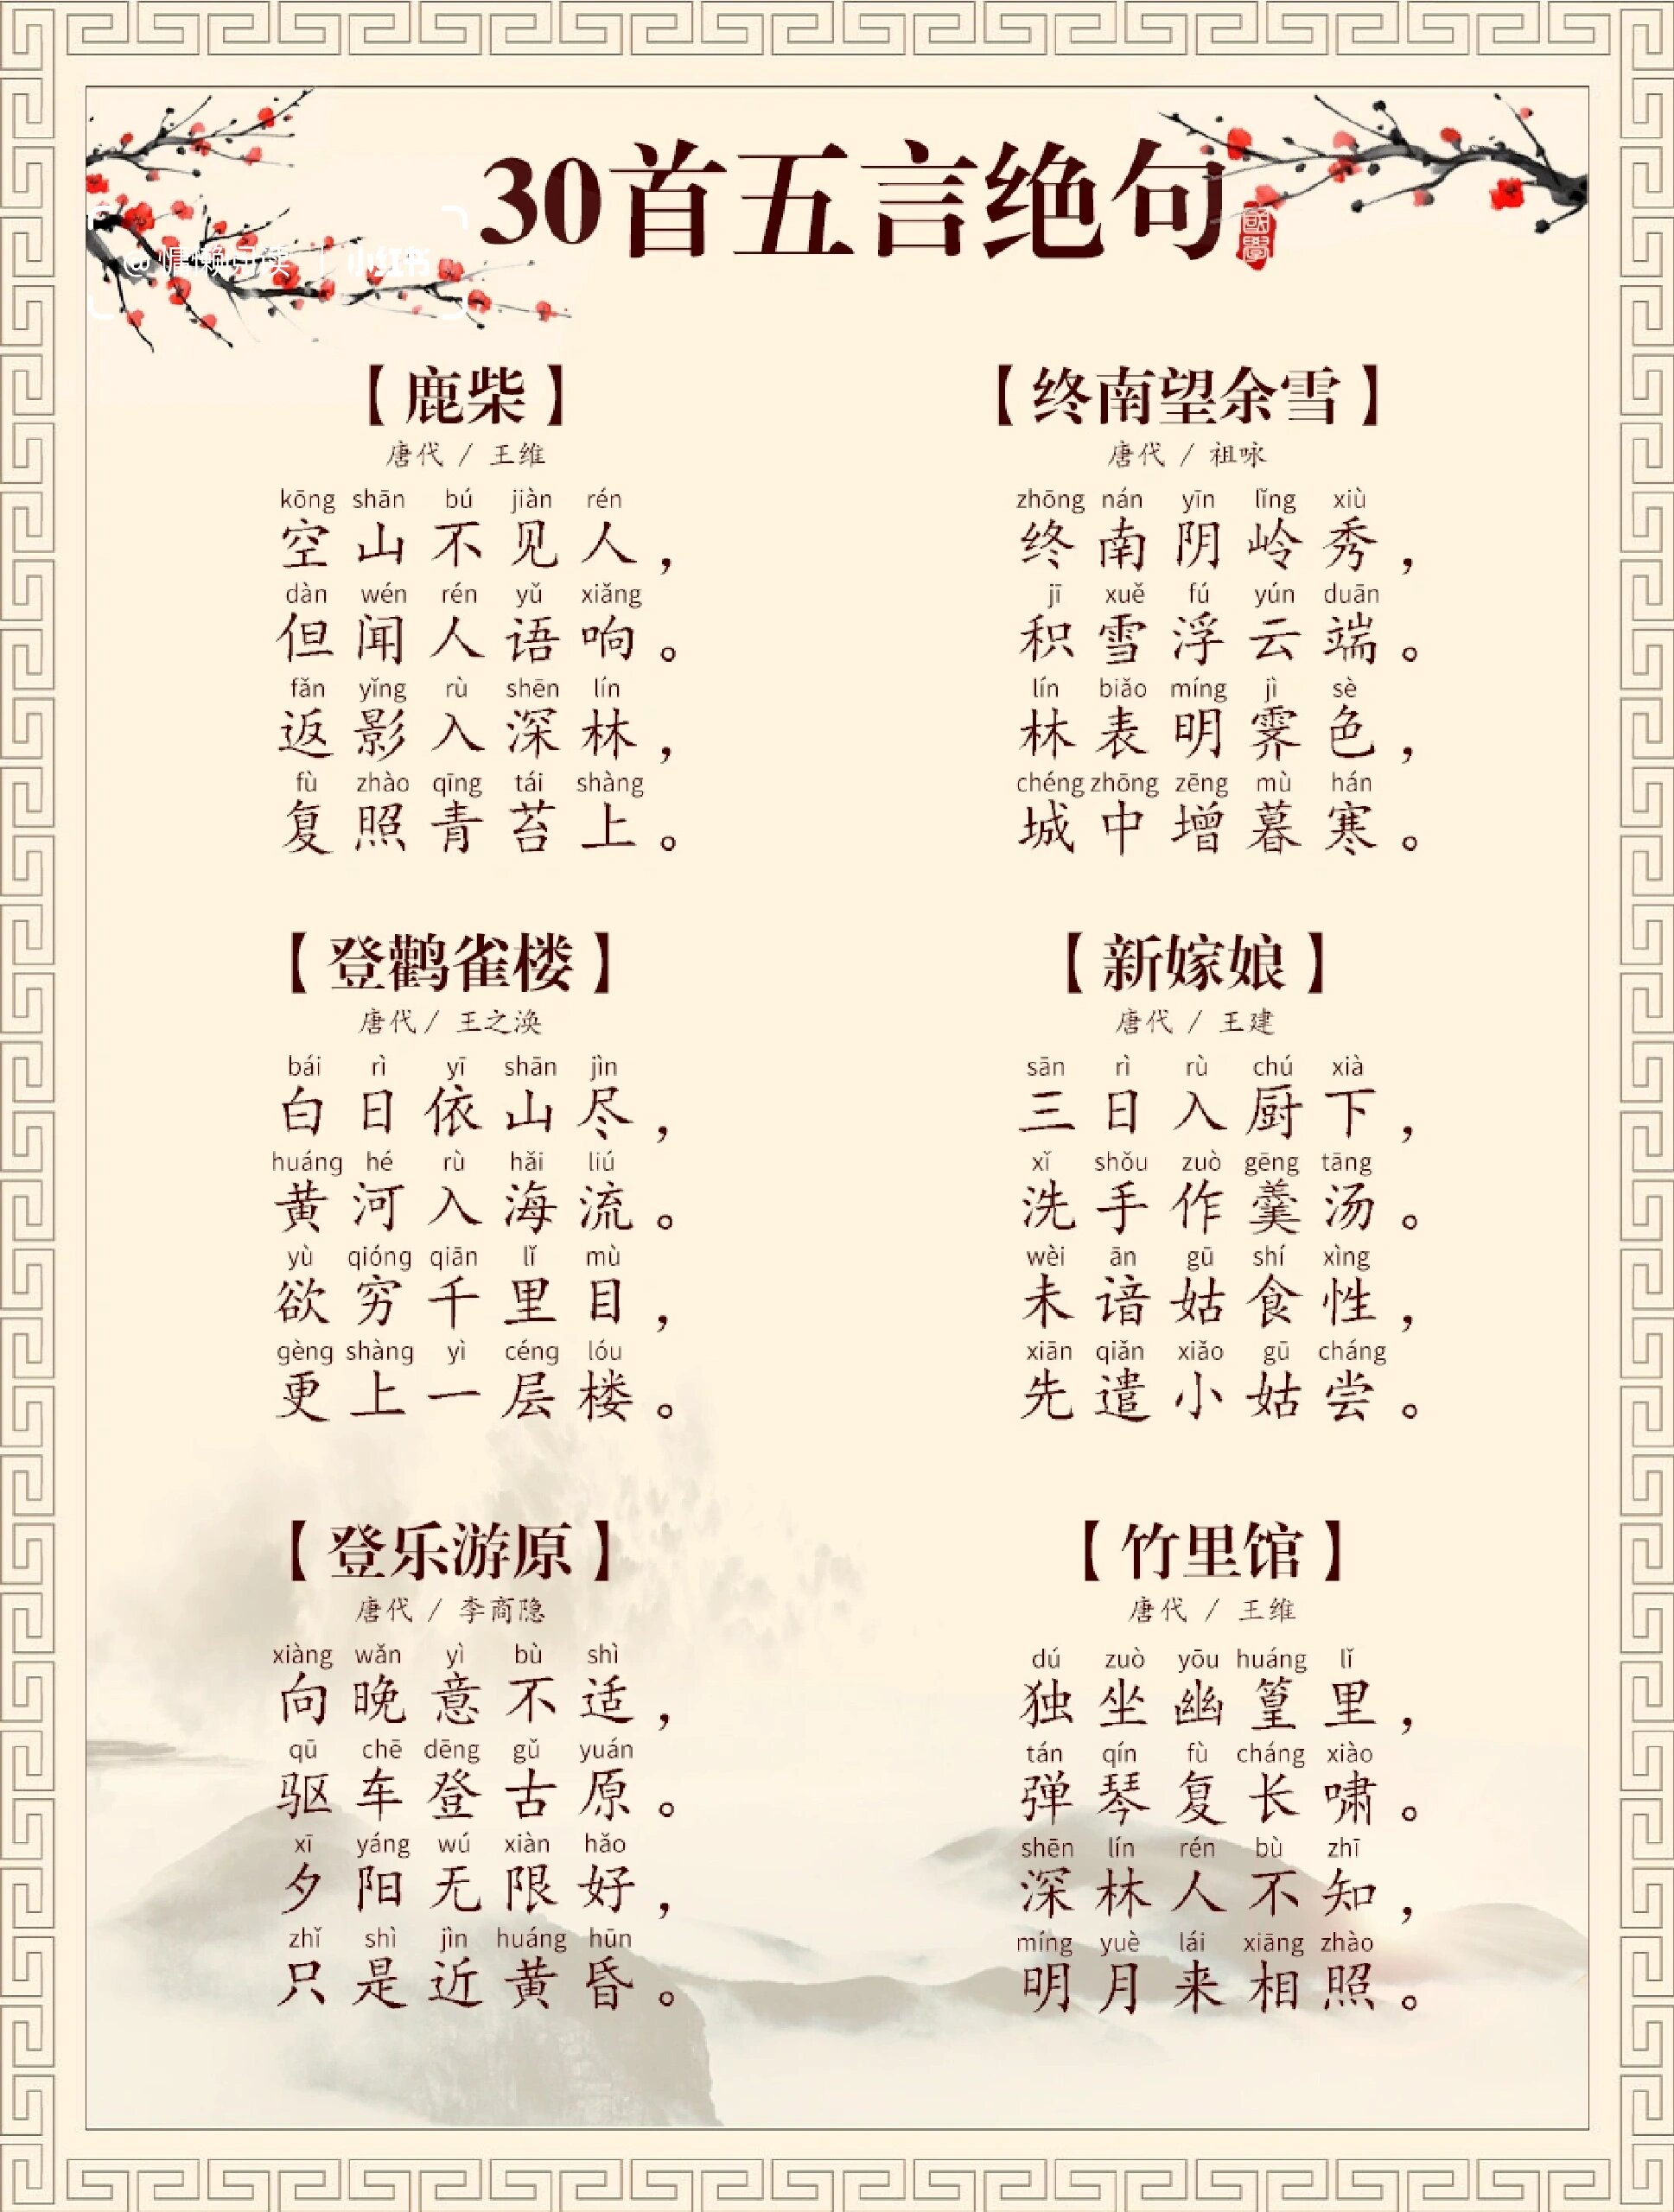 30首五言绝句
國學
@慵懒品读 | 小红书
【鹿柴】
唐代 / 王维
kōng shān bú jiàn rén
空山不见人，
dàn wén rén yǔ xiǎng
但闻人语响。
fǎn yǐng rù shēn lín
返影入深林，
fù zhào qīng tái shàng
复照青苔上。
【终南望余雪】
唐代 / 祖咏
zhōng nán yīn lǐng xiù
终南阴岭秀，
jī xuě fú yún duān
积雪浮云端。
lín biǎo míng jì sè
林表明霁色，
chéng zhōng zēng mù hán
城中增暮寒。
【登鹳雀楼】
唐代 / 王之涣
bái rì yī shān jìn
白日依山尽，
huáng hé rù hǎi liú
黄河入海流。
yù qióng qiān lǐ mù
欲穷千里目，
gèng shàng yì céng lóu
更上一层楼。
【新嫁娘】
唐代 / 王建
sān rì rù chú xià
三日入厨下，
xǐ shǒu zuò gēng tāng
洗手作羹汤。
wèi ān gū shí xìng
未谙姑食性，
xiān qiǎn xiǎo gū cháng
先遣小姑尝。
【登乐游原】
唐代 / 李商隐
xiàng wǎn yì bù shì
向晚意不适，
qū chē dēng gǔ yuán
驱车登古原。
xī yáng wú xiàn hǎo
夕阳无限好，
zhǐ shì jìn huáng hūn
只是近黄昏。
【竹里馆】
唐代 / 王维
dú zuò yōu huáng lǐ
独坐幽篁里，
tán qín fù cháng xiào
弹琴复长啸。
shēn lín rén bù zhī
深林人不知，
míng yuè lái xiāng zhào
明月来相照。